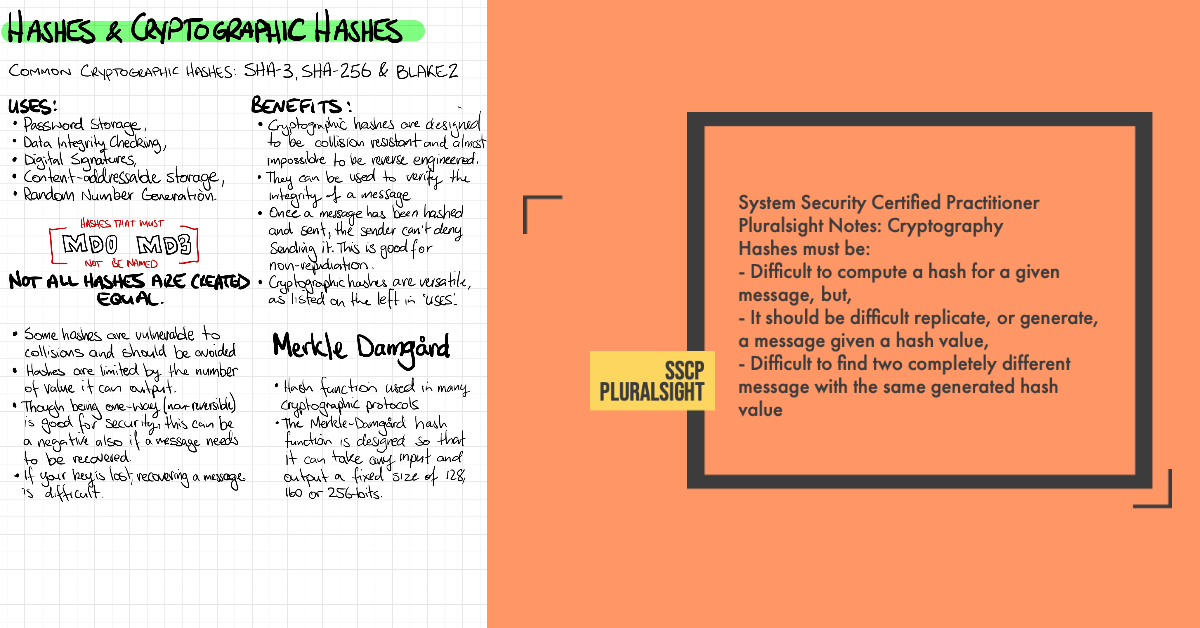 HASHES & CRYPTOGRAPHIC HASHES
COMMON CRYPTOGRAPHIC HASHES: SHA-3, SHA-256 & BLAKE2
USES:
• Password Storage,
• Data Integrity Checking,
• Digital Signatures,
• Content-addressable storage,
• Random Number Generation.
HASHES THAT MUST
MD0 MD3
NOT BE NAMED
NOT ALL HASHES ARE CREATED
EQUAL.
• Some hashes are vulnerable to
collisions and should be avoided
• Hashes are limited by the number
of value it can output.
• Though being one-way (non-reversible)
is good for security, this can be
a negative also if a message needs
to be recovered.
• If your key is lost, recovering a message
is difficult.
BENEFITS:
• Cryptographic hashes are designed
to be collision resistant and almost
impossible to be reverse engineered.
• They can be used to verify the
integrity of a message
• Once a message has been hashed
and sent, the sender can't deny
sending it. This is good for
non-repudiation.
• Cryptographic hashes are versatile,
as listed on the left in 'uses'.
Merkle Damgård
• Hash function used in many
cryptographic protocols
• The Merkle-Damgård hash
function is designed so that
it can take any input and
output a fixed size of 128,
160 or 256-bits.
SSCP
PLURALSIGHT
System Security Certified Practitioner
Pluralsight Notes: Cryptography
Hashes must be:
- Difficult to compute a hash for a given
message, but,
- It should be difficult replicate, or generate,
a message given a hash value,
- Difficult to find two completely different
message with the same generated hash
value